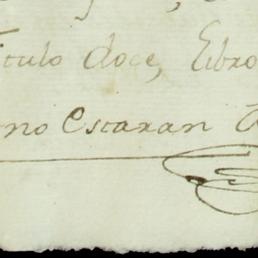 tulo doce, Libro
no Estaran